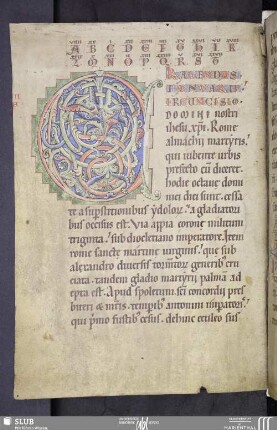 A B C D E F G H I K
L M N O P Q R S T
KALENDIS
IANVARII
CIRCVMCISIO
DOMINI nostri
ihesu xpi. Rome
almachii martyris.
qui iubente urbis
prefecto cū diceret.
hodie octaue domi
nici diei sunt. cessa
te a supstitionibus ydolorᷓ. a gladiatori
bus occisus est. Via appia corone militum
triginta. sub diocletiano imperatore. Item
rome sancte martine uirginis. que sub
alexandro diuersis tormtorᷓ generibᷤ cru
ciata. tandem gladio martyrii palmā ad
epta est. Apud spoletum. sci concordii pres
biteri & mris. temporibᷤ antonini impatoris.
qui primo fustibᷤ cesus. dehinc eculeo sus
SLUB
MARIENTHAL